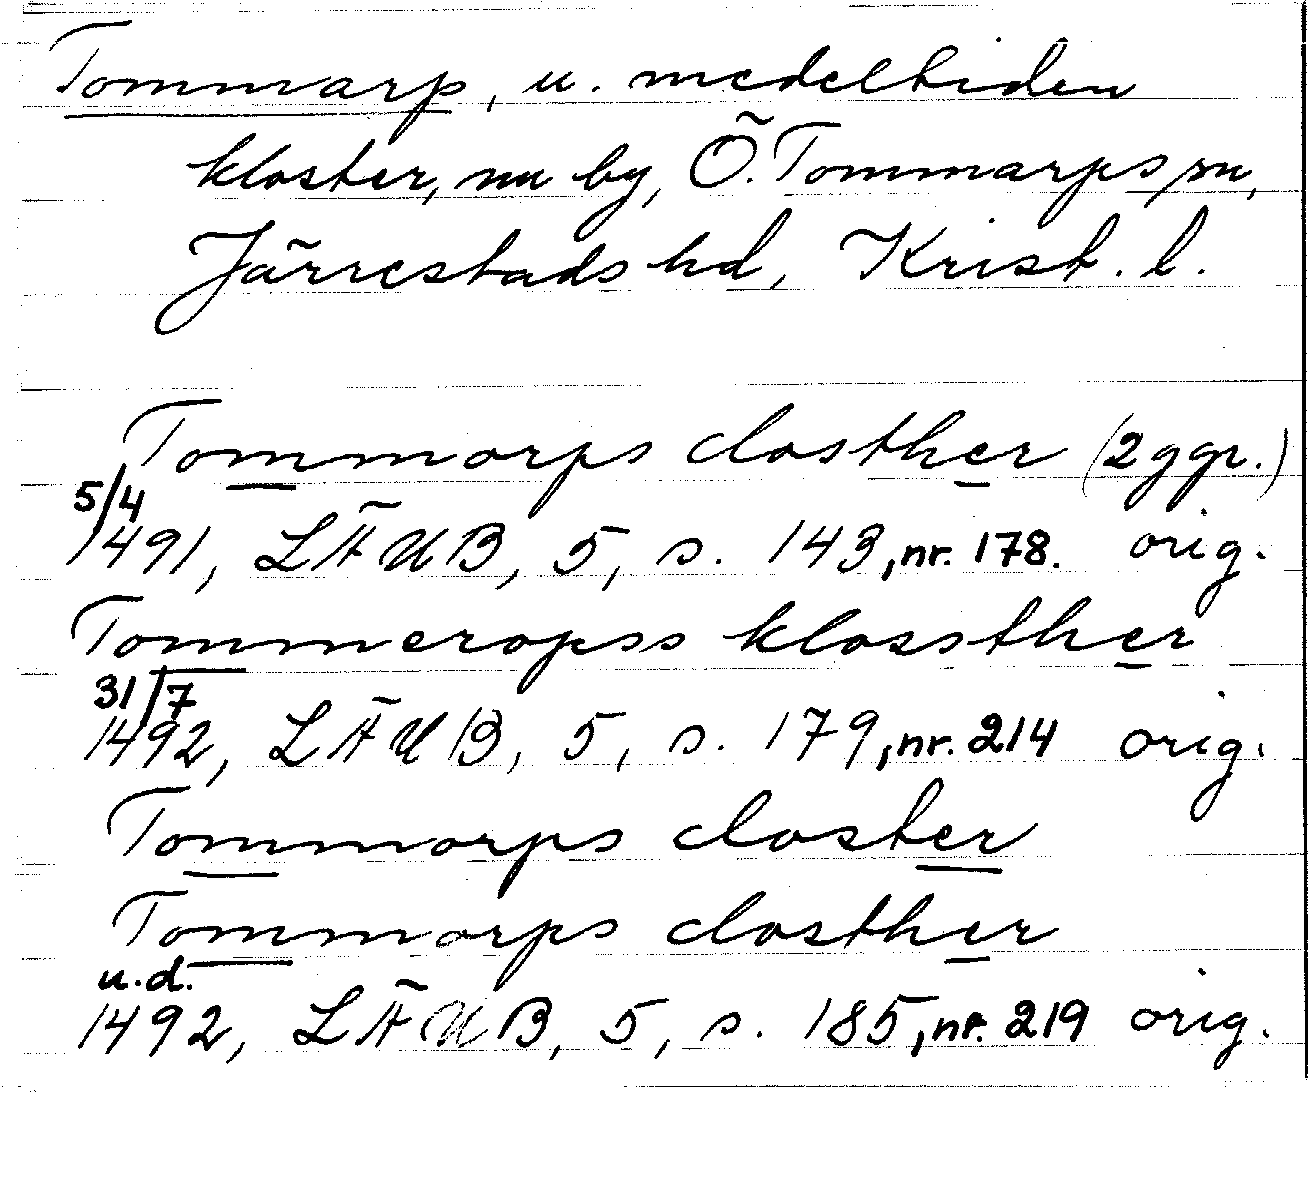 Tommarp, u. medeltiden
kloster, nu by, Ö. Tommarps sn,
Järrestads hd, Krist. l.
Tommorps closther (2 ggr.)
5/4
1491, LÄUB, 5, s. 143, nr. 178. orig.
Tommeropss klossther
31/7
1492, LÄUB, 5, s. 179, nr. 214 orig.
Tommorps closter
Tommorps closther
u.d.
1492, LÄUB, 5, s. 185, nr. 219 orig.